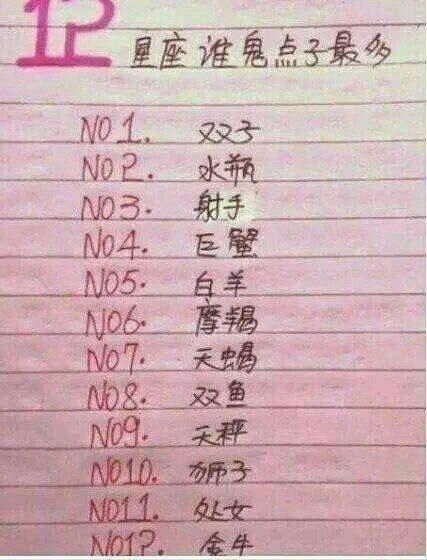 12 星座谁鬼点子最多
NO1. 双子
NO2. 水瓶
NO3. 射手
NO4. 巨蟹
NO5. 白羊
NO6. 摩羯
NO7. 天蝎
NO8. 双鱼
NO9. 天秤
NO10. 狮子
NO11. 处女
NO12. 金牛